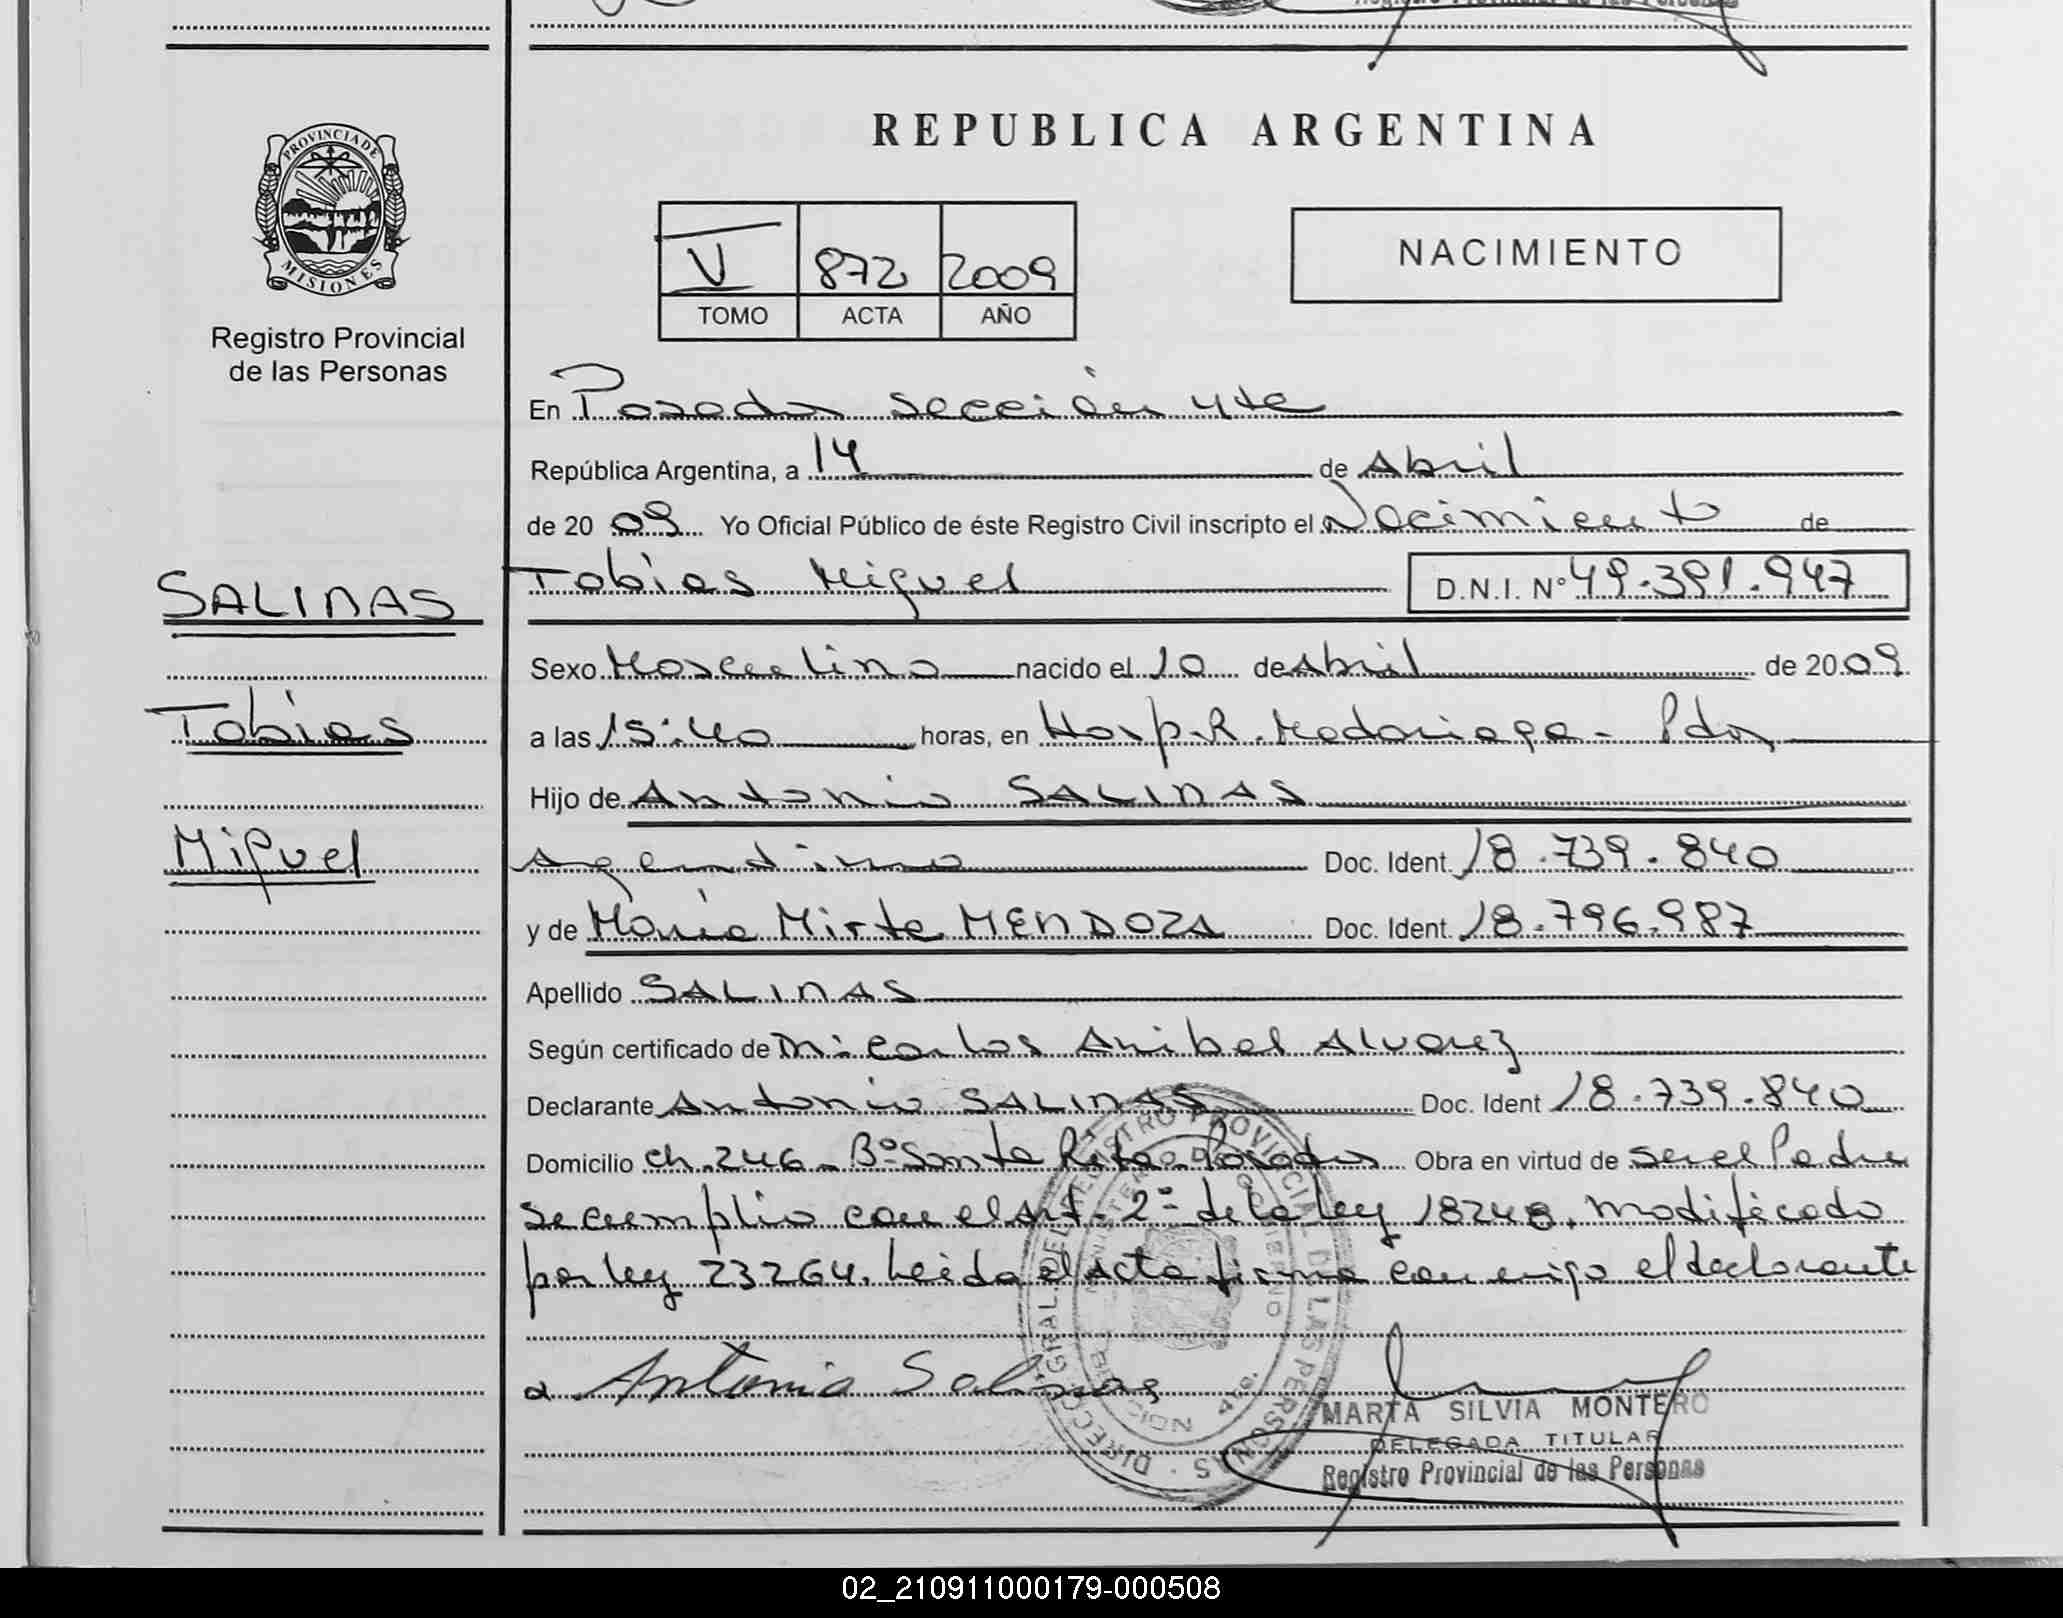 PROVINCIA DE
MISIONES
Registro Provincial
de las Personas
SALINAS
Tobias
Miguel
REPUBLICA ARGENTINA
V 872 2009
TOMO ACTA AÑO
NACIMIENTO
En Posadas sección 4ta
República Argentina, a 14 de Abril
de 20 09 Yo Oficial Público de éste Registro Civil inscripto el Nacimiento de
Tobias Miguel D.N.I. Nº 49.391.947
Sexo Masculino nacido el 10 de Abril de 20 09
a las 15:40 horas, en Hosp. R. Madariaga - Pdas
Hijo de Antonio SALINAS
Argentino Doc. Ident. 18.739.840
y de María Mirta MENDOZA Doc. Ident. 18.796.987
Apellido SALINAS
Según certificado de Carlos Anibal Alvarez
Declarante Antonio SALINAS Doc. Ident 18.739.840
Domicilio ch. 246 - Bº Santa Rita - Posadas Obra en virtud de ser el Padre
se cumplio con el Art. 2º de la ley 18248. modificado
por ley 23264. Leida el acta firma conmigo el declarante
Antonio Salinas
MARTA SILVIA MONTERO
DELEGADA TITULAR
Registro Provincial de las Personas
02_210911000179-000508